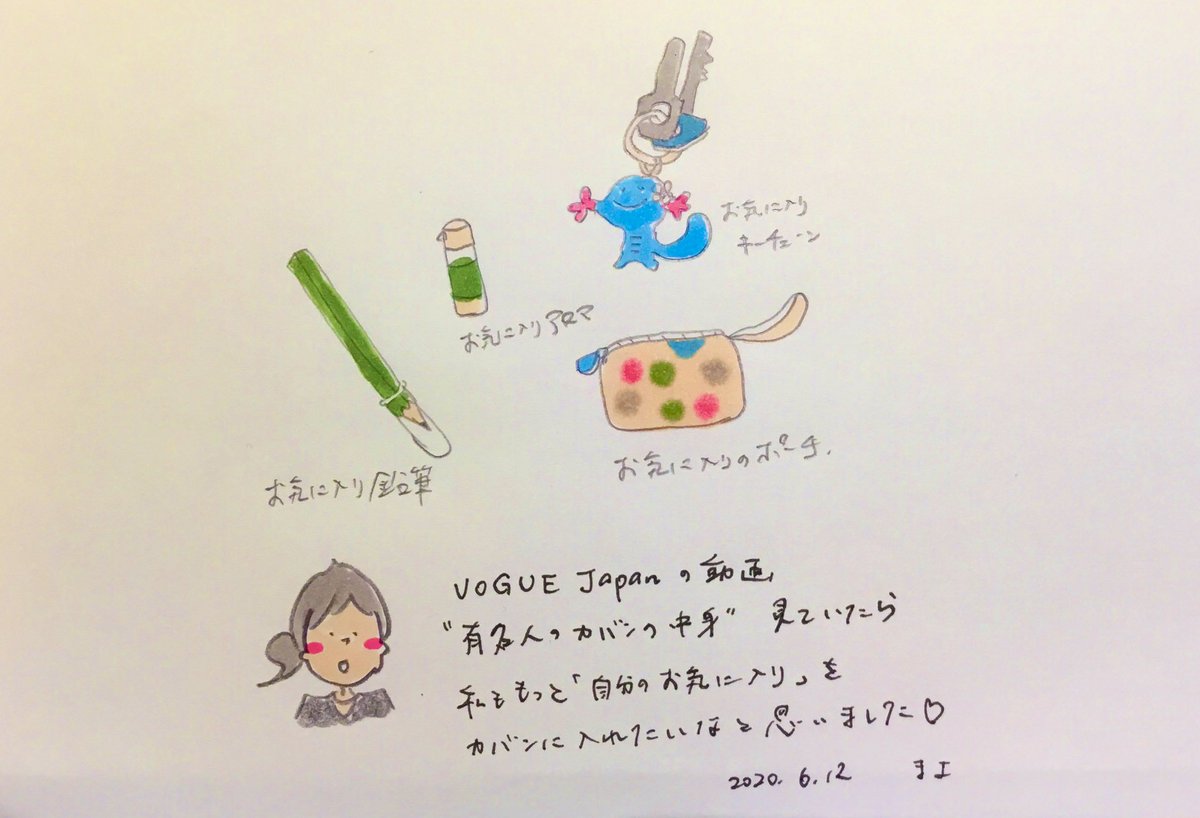 お気に入り
キーチェーン
お気に入りアロマ
お気に入りのポーチ.
お気に入り鉛筆
VOGUE Japanの動画
"有名人のカバンの中身" 見ていたら
私ももっと「自分のお気に入り」を
カバンに入れたいなと思いました♡
2020. 6. 12 まよ